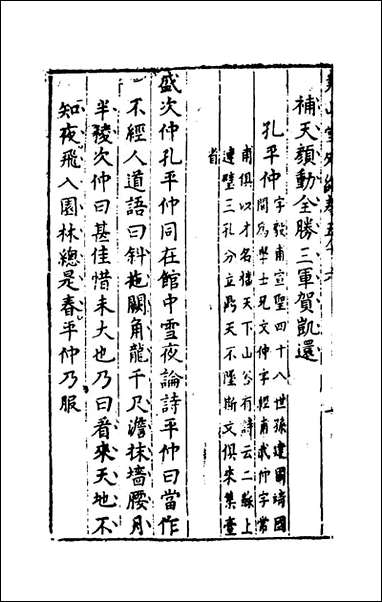 補天顏動全勝三軍賀凱還
孔平仲字毅甫宣聖四十八世孫建國靖國
間為學士兄文仲字經甫武仲字常
甫俱以才名擅天下山谷有詩云二蘇上
連璧三孔分立鼎天不墜斯文俱來集臺
省
盛次仲孔平仲同在館中雪夜論詩平仲曰當作
不經人道語曰斜拖闕角龍千尺澹抹墻腰月
半稜次仲曰甚佳惜未大也乃曰看來天地不
知夜飛入園林總是春平仲乃服